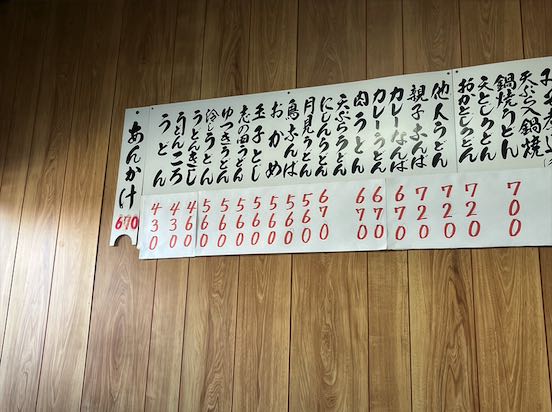 天ぷら入鍋焼
鍋焼うどん 700
天とじうどん
おかとじうどん 720
他人うどん 720
親子なんば 720
カレーなんば 670
カレーうどん 670
肉うどん 670
天ぷらうどん
にしんうどん 670
月見うどん 560
鳥なんば 560
おかめ 560
玉子とじ 560
志の田うどん 560
ゆつきうどん 560
冷しうどん 560
うどんきし 460
うどんころ 430
うどん 430
あんかけ 670